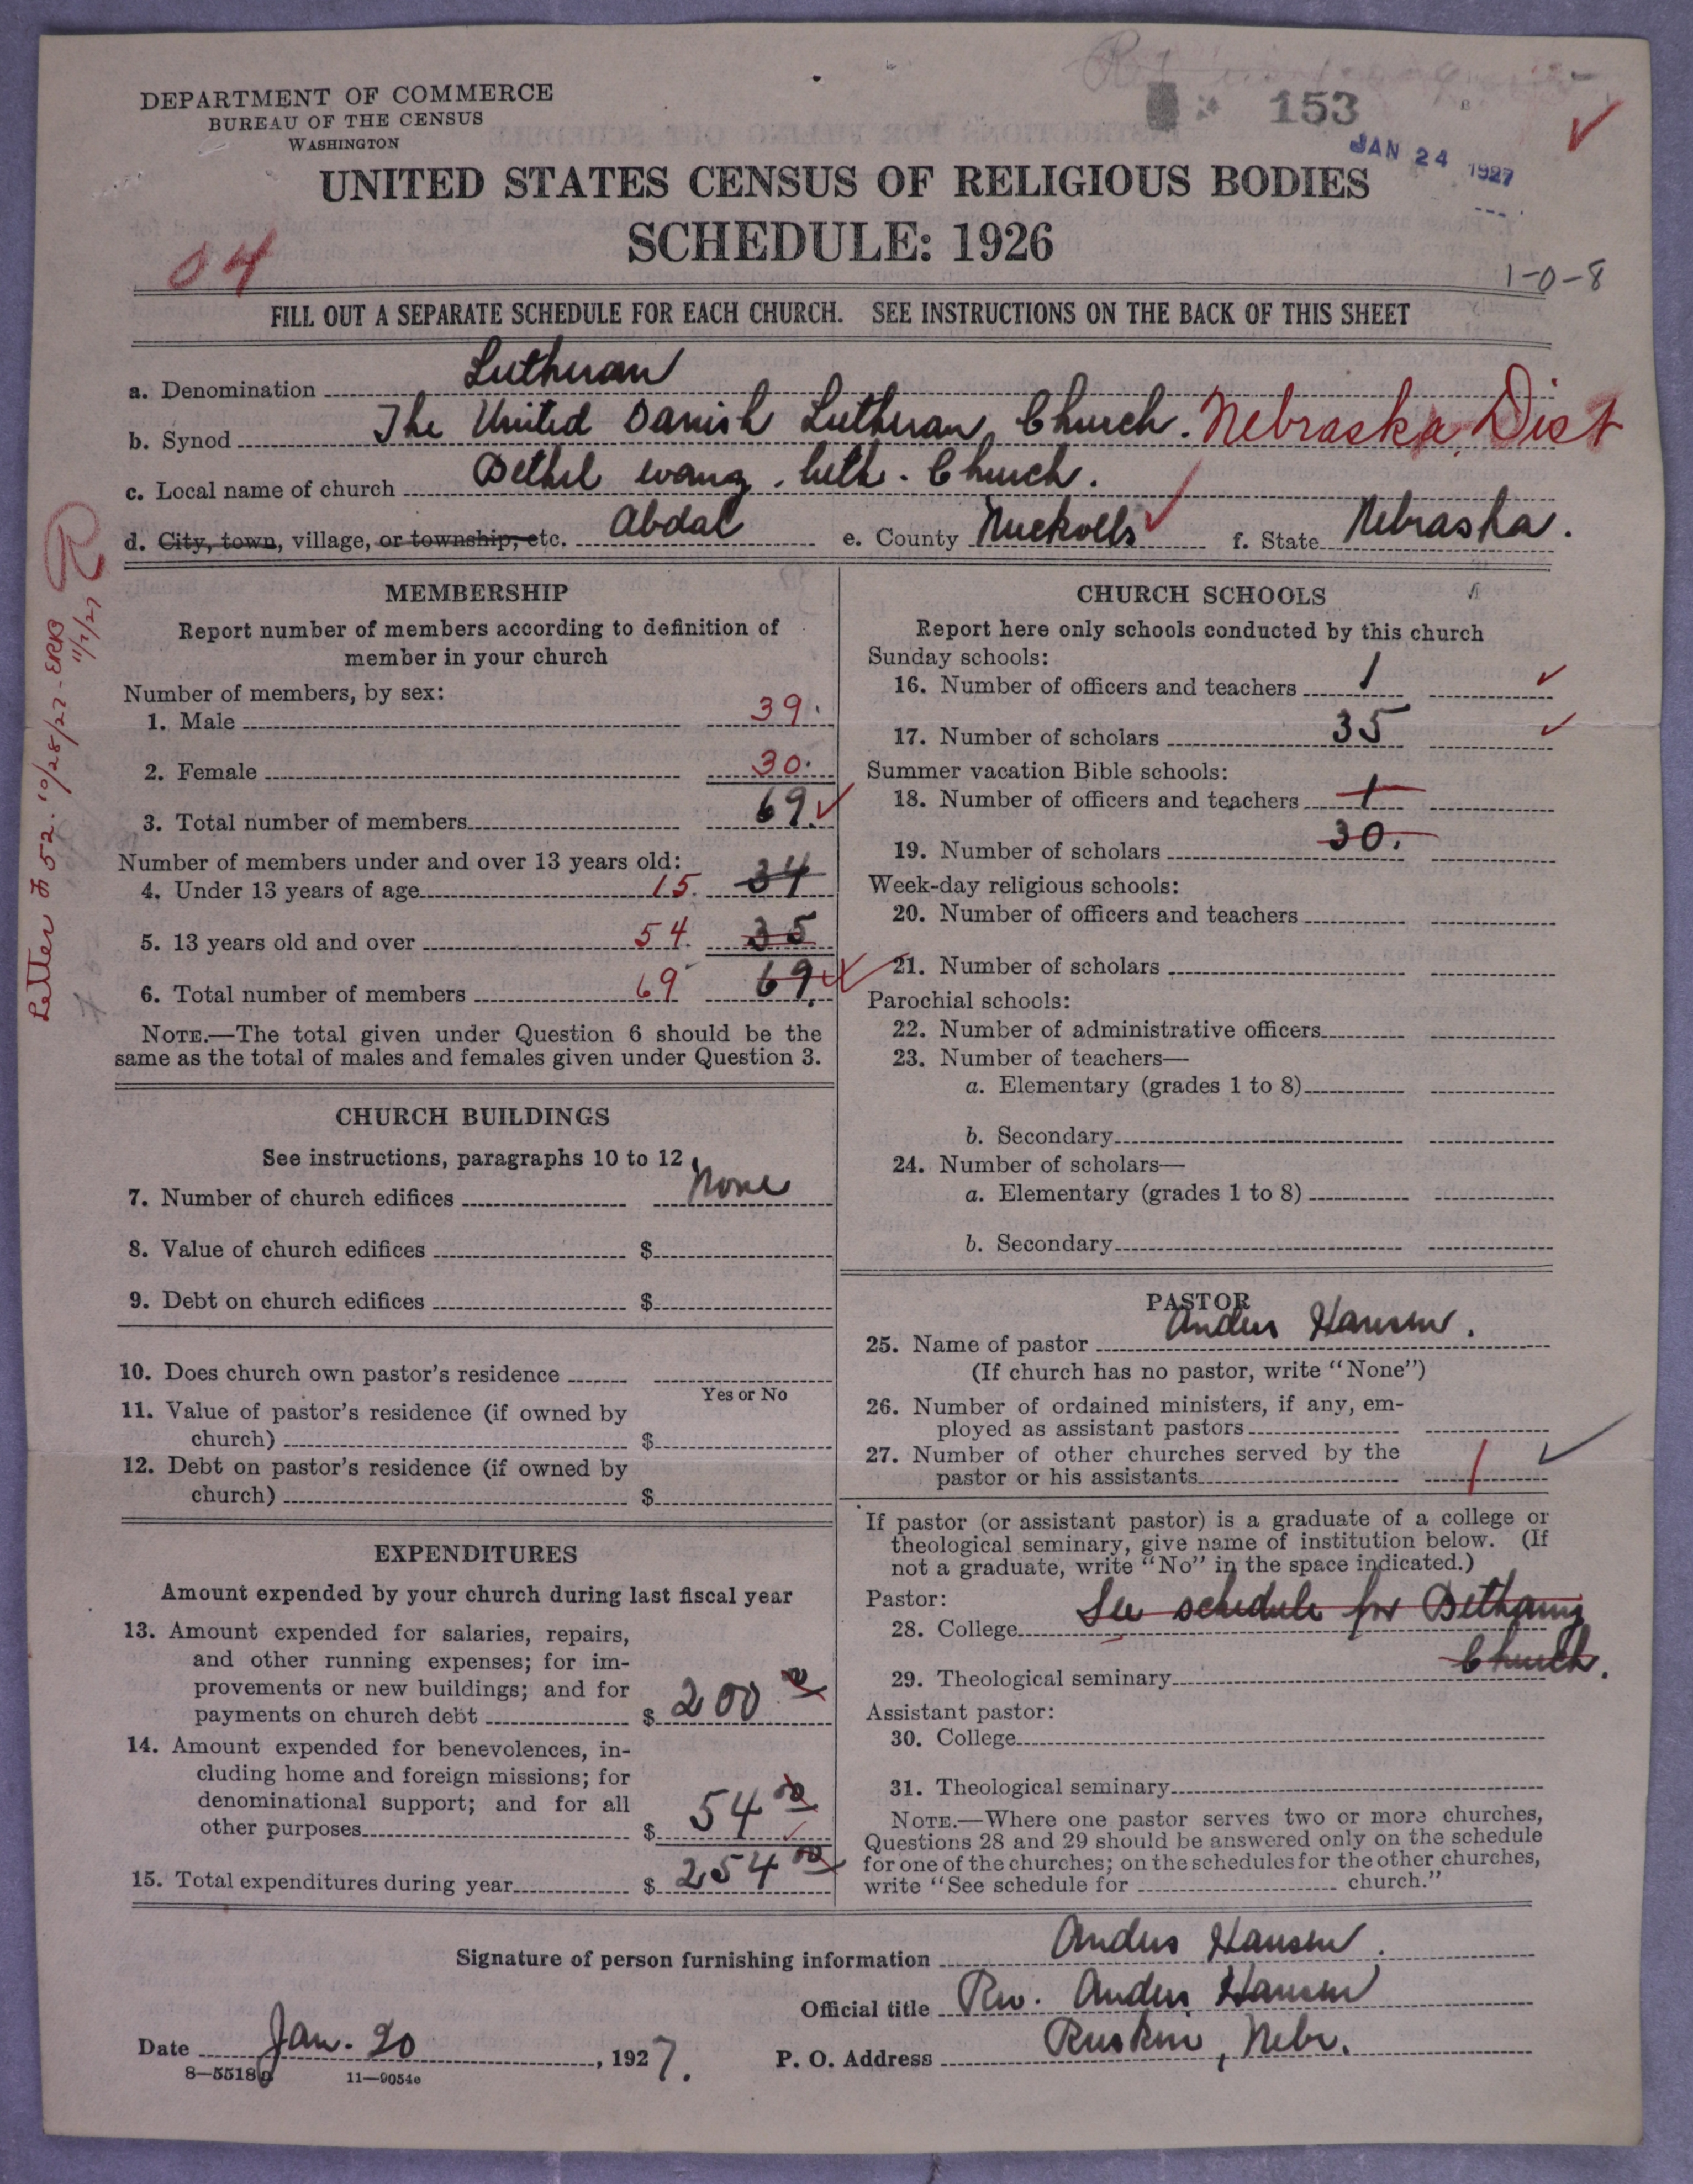 DEPARTMENT OF COMMERCE
BUREAU OF THE CENSUS
WASHINGTON
153
JAN 24 1927
UNITED STATES CENSUS OF RELIGIOUS BODIES
SCHEDULE: 1926
04
1-0-8
FILL OUT A SEPARATE SCHEDULE FOR EACH CHURCH. SEE INSTRUCTIONS ON THE BACK OF THIS SHEET
a. Denomination Lutheran
b. Synod The United Danish Lutheran Church. Nebraska, Dist
c. Local name of church Bethel evang. luth. Church.
d. City, town, village, or township, etc. Abdal e. County Nuckolls f. State Nebraska.
Letter # 52. 10/28/27 - ERKB
11/2/27
MEMBERSHIP
Report number of members according to definition of
member in your church
Number of members, by sex:
1. Male 39.
2. Female 30.
3. Total number of members 69.
Number of members under and over 13 years old:
4. Under 13 years of age 15. 34
5. 13 years old and over 54. 35
6. Total number of members 69 69.
NOTE.—The total given under Question 6 should be the
same as the total of males and females given under Question 3.
CHURCH BUILDINGS
See instructions, paragraphs 10 to 12
7. Number of church edifices None
8. Value of church edifices $
9. Debt on church edifices $
10. Does church own pastor's residence
Yes or No
11. Value of pastor's residence (if owned by
church) $
12. Debt on pastor's residence (if owned by
church) $
EXPENDITURES
Amount expended by your church during last fiscal year
13. Amount expended for salaries, repairs,
and other running expenses; for im-
provements or new buildings; and for
payments on church debt $ 200 00
14. Amount expended for benevolences, in-
cluding home and foreign missions; for
denominational support; and for all
other purposes $ 54 00
15. Total expenditures during year $ 254 00
CHURCH SCHOOLS
Report here only schools conducted by this church
Sunday schools:
16. Number of officers and teachers 1
17. Number of scholars 35
Summer vacation Bible schools:
18. Number of officers and teachers 1
19. Number of scholars 30.
Week-day religious schools:
20. Number of officers and teachers
21. Number of scholars
Parochial schools:
22. Number of administrative officers
23. Number of teachers—
a. Elementary (grades 1 to 8)
b. Secondary
24. Number of scholars—
a. Elementary (grades 1 to 8)
b. Secondary
PASTOR
25. Name of pastor Anders Hansen.
(If church has no pastor, write "None")
26. Number of ordained ministers, if any, em-
ployed as assistant pastors
27. Number of other churches served by the
pastor or his assistants 1
If pastor (or assistant pastor) is a graduate of a college or
theological seminary, give name of institution below. (If
not a graduate, write "No" in the space indicated.)
Pastor:
28. College See schedule for Bethany
Church.
29. Theological seminary
Assistant pastor:
30. College
31. Theological seminary
NOTE.—Where one pastor serves two or more churches,
Questions 28 and 29 should be answered only on the schedule
for one of the churches; on the schedules for the other churches,
write "See schedule for church."
Signature of person furnishing information Anders Hansen.
Official title Rev. Anders Hansen
Date Jan. 20, 1927. P. O. Address Ruskin, Nebr.
8—5518g 11—9054e